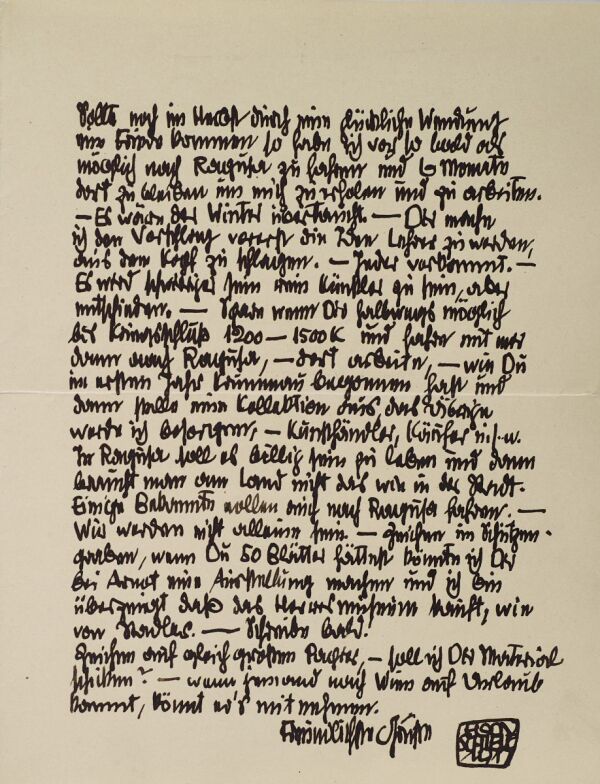 Sollte noch im Herbst durch eine glückliche Wendung
der Friede kommen so habe ich vor, so bald als
möglich nach Ragusa zu fahren und 6 Monate
dort zu bleiben um mich zu erholen und zu arbeiten.
— Es wäre der Winter überbrückt. — Dir mache
ich den Vorschlag vorerst die Idee Lehrer zu werden,
aus dem Kopf zu schlagen. — Jeder verkommt. —
Es wird schwieriger sein ein Künstler zu sein, aber
entschieden. — Spare wenn Dir halbwegs möglich
bis Kriegsschluß 1200 — 1500 K und fahre mit mir
dann nach Ragusa, — dort arbeite, — wie Du
im ersten Jahr Krummau begonnen hast und
dann stelle eine Kollektion aus das Übrige
werde ich besorgen, — Kunsthändler, Käufer u.s.w.
In Ragusa soll es billig sein zu leben und dann
braucht man am Land nicht das wie in der Stadt.
Einige Bekannte wollen auch nach Ragusa fahren. —
Wir werden nicht alleine sein. — Zeichne im Schützen-
graben, wenn Du 50 Blätter hättest könnte ich Dir
bei Arnot eine Ausstellung machen und ich bin
überzeugt daß das Heeresmuseum kauft, wie
von Stadler. — Schreibe bald!
Zeichne auf gleich großem Papier, — soll ich Dir Material
schicken? — wenn jemand nach Wien auf Urlaub
kommt, könnt er's mitnehmen.
Freundlichste Grüße
EGON
SCHIELE